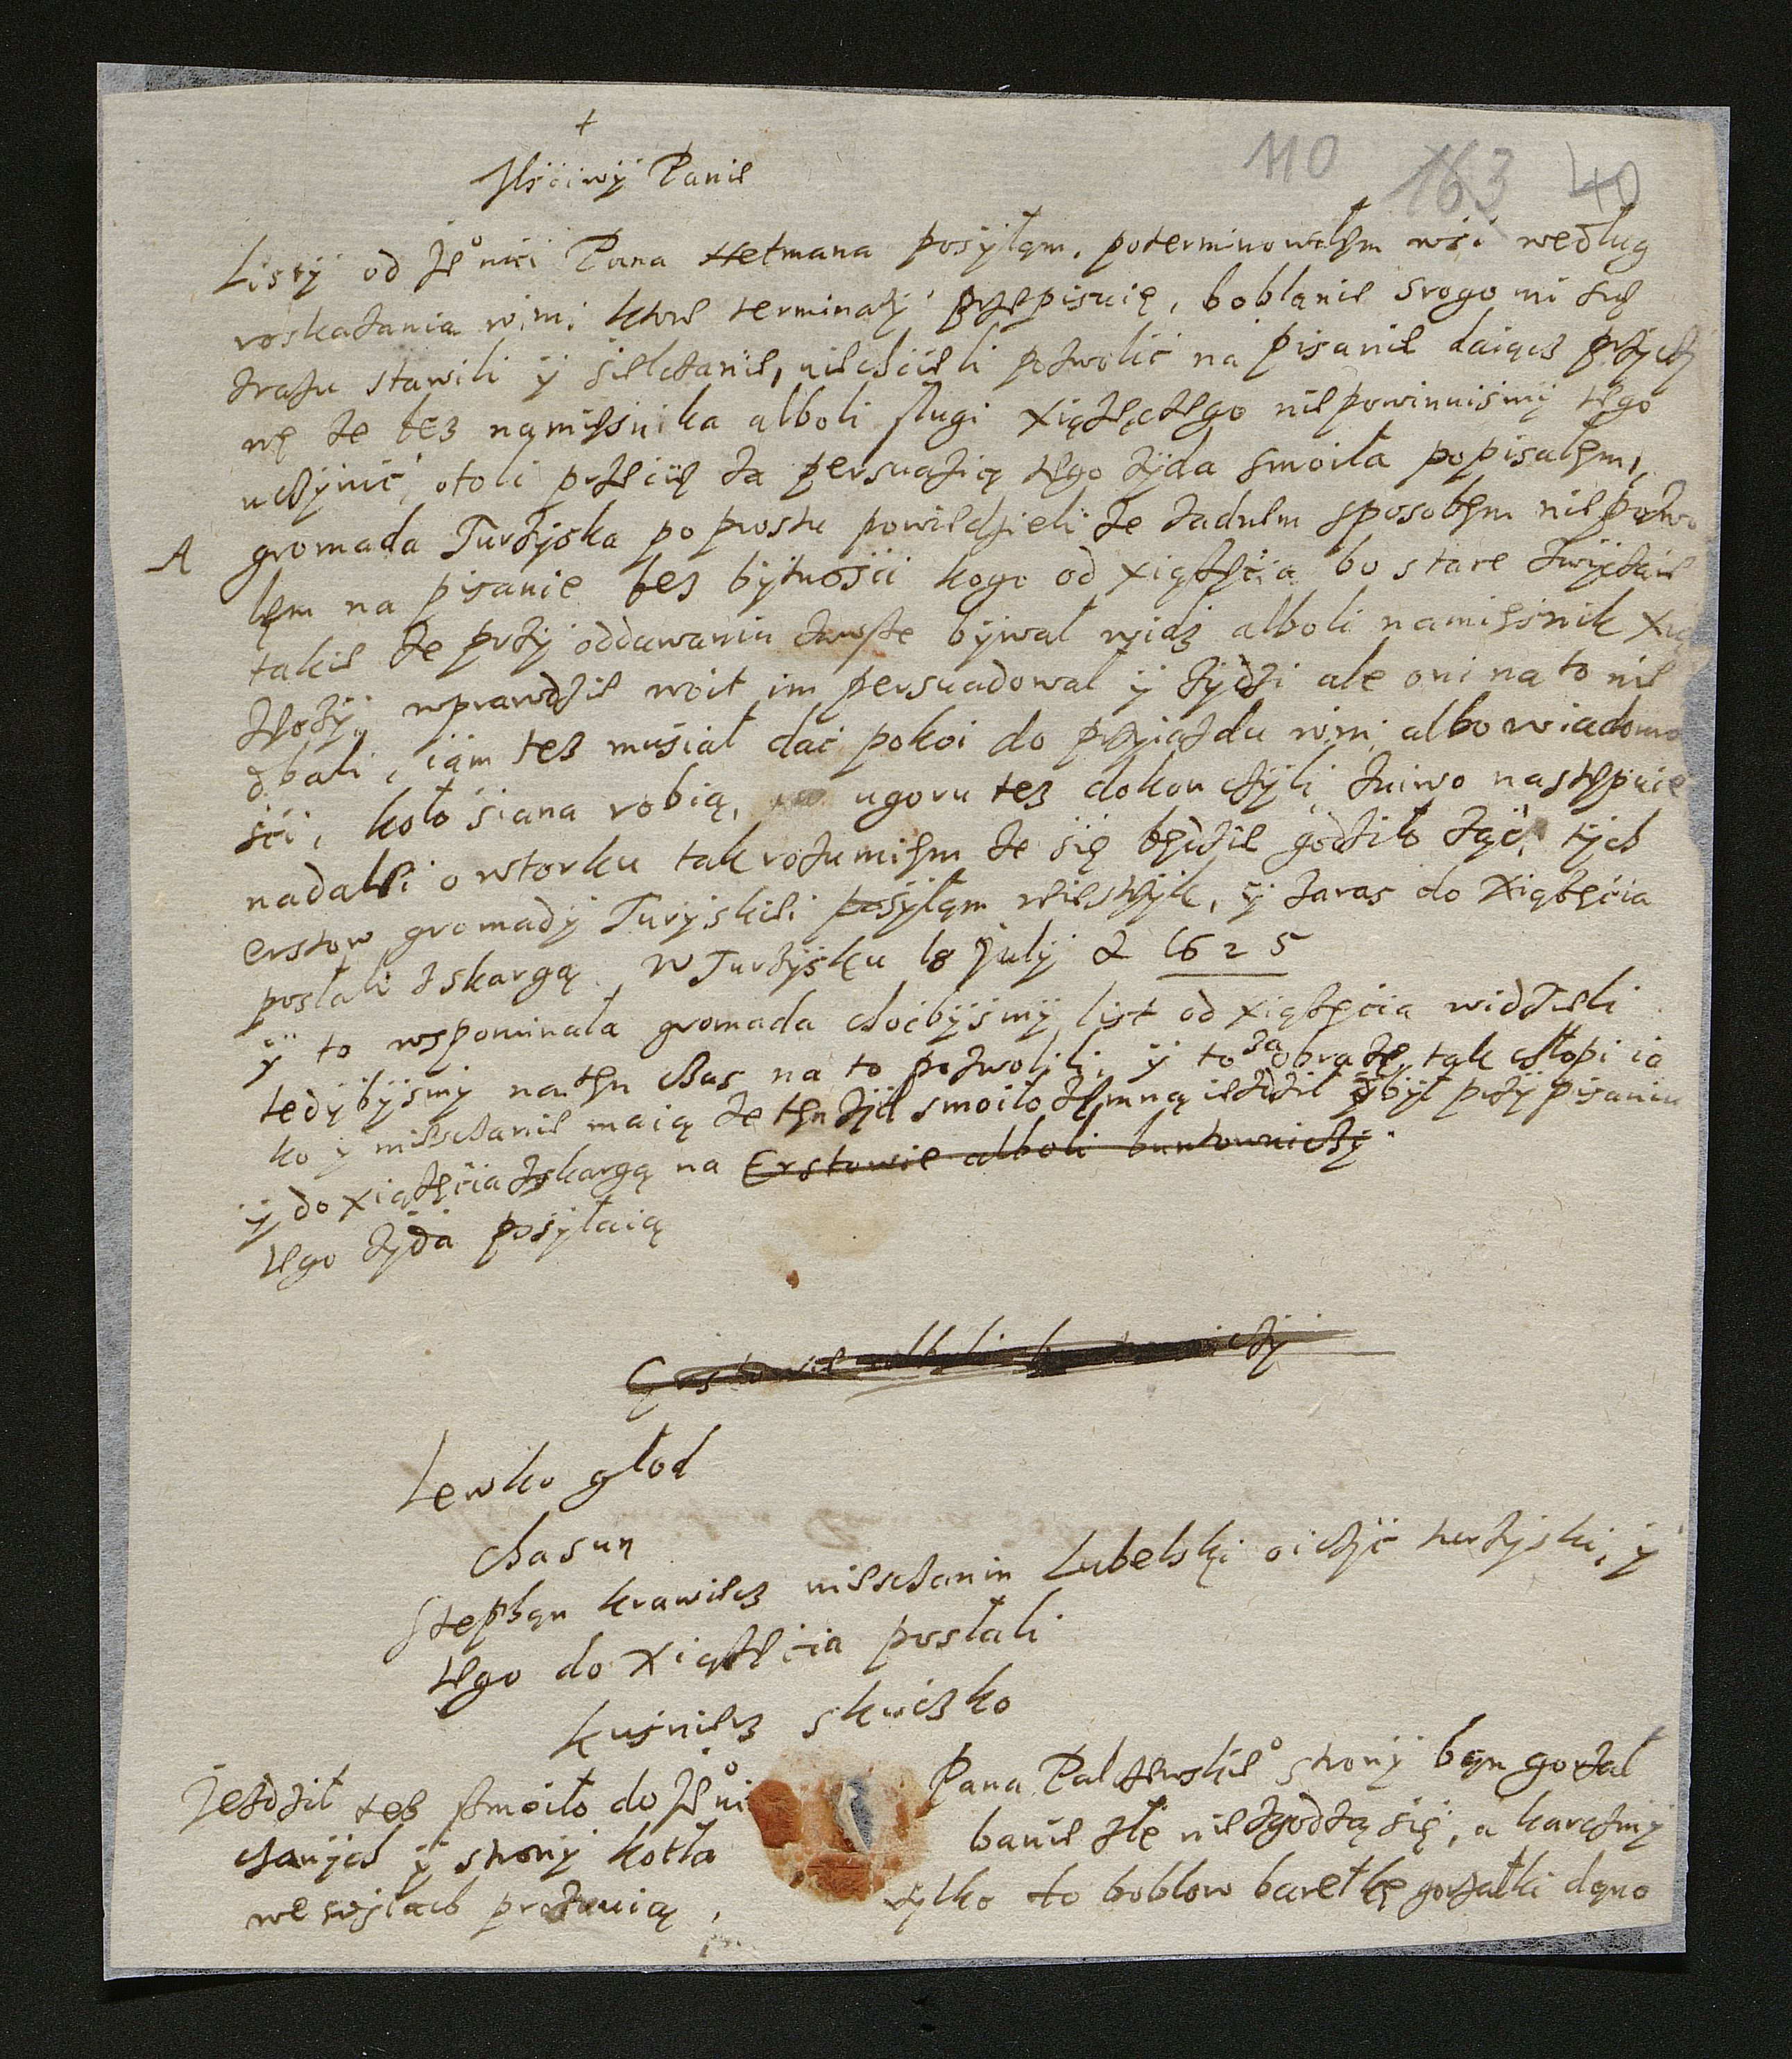 +
110 163 40
Mściwÿ Panie
Listÿ od Je° mci Pana Hetmana posÿłam, poterminowałem wsi według
roskazania wmi ktore terminatÿ przepisuię, boblanie srogo mi się
zrazu stawili ÿ sielczanie, niechcieli pozwolić na pisanie daiącz przÿczÿ
nę że bez namiesnika alboli sługi xiążęczego niepowinnismÿ tego
uczÿnić, otoli przecię za perswazią tego żÿda smoiła popisałem,
A gromada Turzÿska po prostu powiedzieli że żadnem sposobem nie pozwo
lem na pisanie bez bÿtnosci kogo od xiążęcia bo stare zwÿczaie
takie że przÿ oddawaniu zawsze bÿwał widz alboli namiesnik xią
żęczÿ, wprawdzie woit im perswadował ÿ żÿdzi ale oni na to nie
dbali, iam tez musiał dać pokoi do przÿiazdu wmi albo wiadomo
sci, koło siana robią, ugoru tez dokonczÿli, żniwo nastepuie
nadalei o wtorku tak rozumiem że się będzie godziło żąć, tÿch
erstow gromadÿ Turÿskiei posÿłam reiestrzÿk, ÿ zaras do Xiążęcia
posłali zskargą. W Turzÿsku 18 Julÿ A 1625
ÿ to wspominała gromada choćbÿsmÿ list od xiążęcia widzieli
tedÿbÿsmÿ na ten czas na to pozwolili, ÿ to za obrazę tak chłopi ia
ko ÿ miesczanie maią że ten żÿd smoiło zemną iezdził ÿ bÿł przÿ pisaniu
ÿ do xiążęcia zskargą na Erstowie alboli buntowniczÿ
tego żÿda posÿłaią
Erstowie alboli buntowniczÿ
Lewko głod
Chasun
Stephan krawiecz miesczanin Lubelski oiczÿc turzÿski, ÿ
tego do xiążęcia posłali
kusnierz skuczko
Jezdził tez Smoiło do Je° m Pana Palczewskie° stronÿ ban gorzał
czanÿch ÿ stronÿ kotła banie złe niezgodzą się, a karczmÿ
we wsÿłach proznuią, tylko to boblow barełkę gorzałki dano